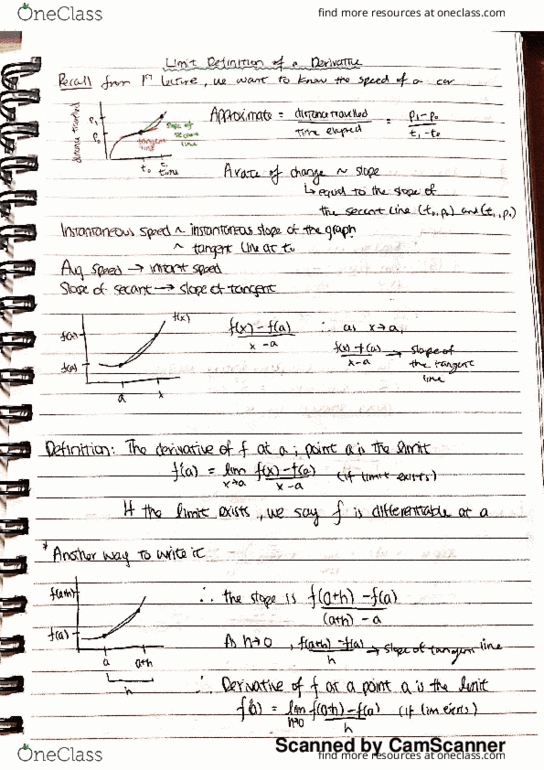 OneClass
find more resources at oneclass.com
Limit Definition of a Derivative
Recall from 1st lecture, we want to know the speed of a car
distance travelled
P1
P0
slope of secant line
tangent line
t0 t1
time
Approximate = distance travelled / time elapsed = P1-P0 / t1-t0
A rate of change ~ slope
↳ equal to the slope of
the secant line (t0, P0) and (t1, P1)
Instantaneous speed ~ instantaneous slope of the graph
~ tangent line at t0
Avg speed → instant speed
Slope of secant → slope of tangent
f(x)
f(x)
f(a)
a x
f(x)-f(a) / x-a
∴ as x→a,
f(x)-f(a) / x-a → slope of
the tangent
line
Definition: The derivative of f at a; point a is the limit
f(a) = lim x→a f(x)-f(a) / x-a (if limit exists)
If the limit exists, we say f is differentiable at a
* Another way to write it
f(a+h)
f(a)
a a+h
h
∴ the slope is f(a+h)-f(a) / (a+h)-a
As h→0, f(a+h)-f(a) / h → slope of tangent line
∴ Derivative of f at a point a is the limit
f(a) = lim h→0 f(a+h)-f(a) / h (if lim exists)
Scanned by CamScanner
OneClass
find more resources at oneclass.com